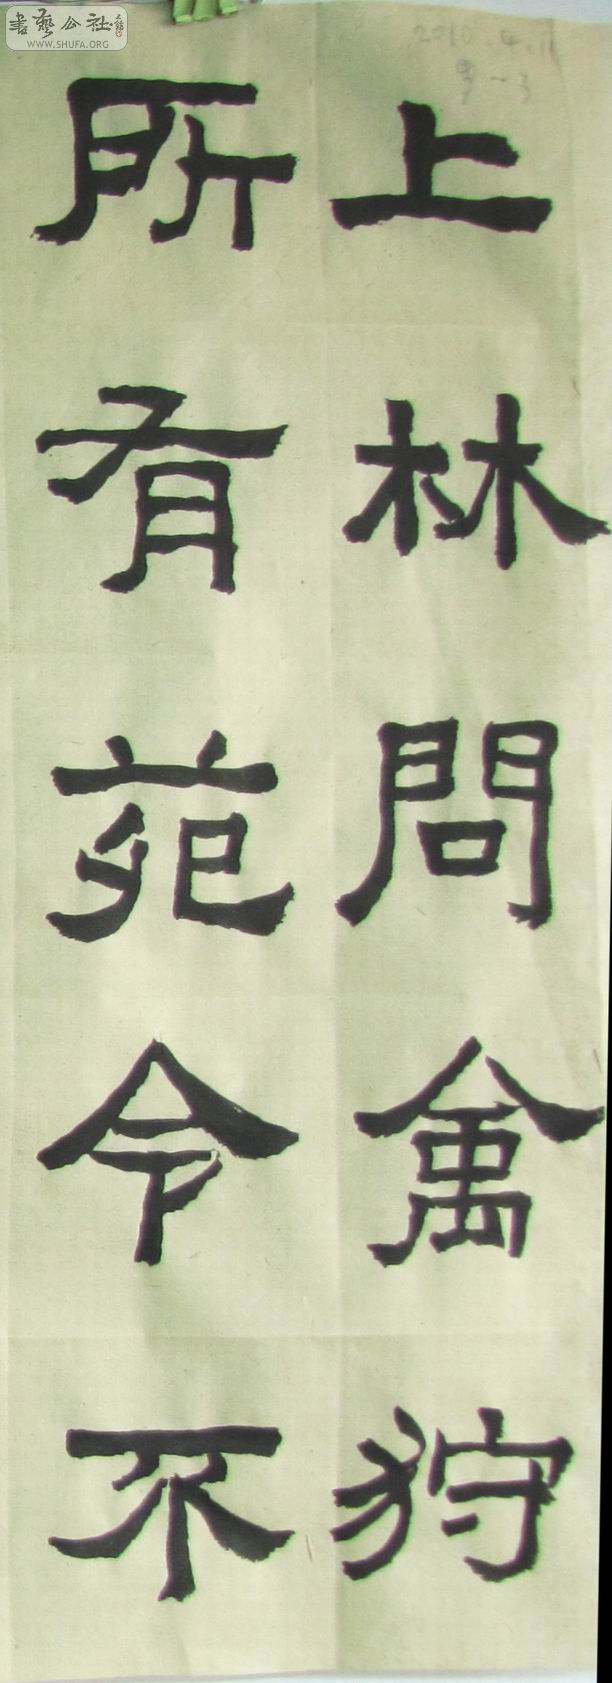 上林問禽狩
所有苑令不
書藝公社
WWW.SHUFA.ORG
2010.4.11